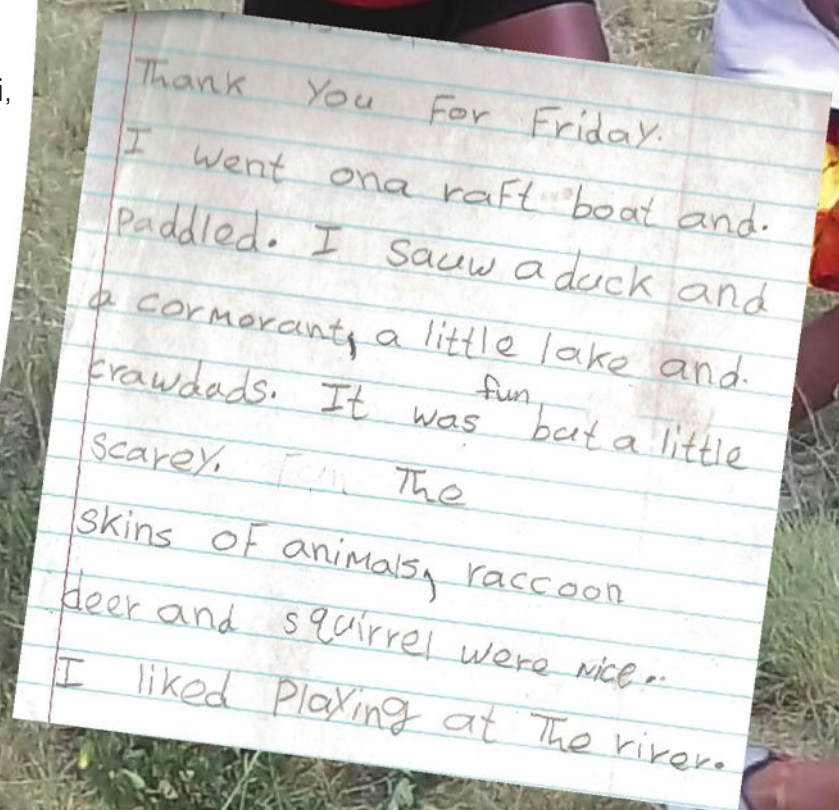 i,
Thank You For Friday.
I went ona raft boat and.
paddled. I sauw a duck and
a cormorant, a little lake and.
crawdads. It was fun but a little
scarey. Fun The
skins of animals, raccoon
deer and squirrel were nice..
I liked Playing at The river.